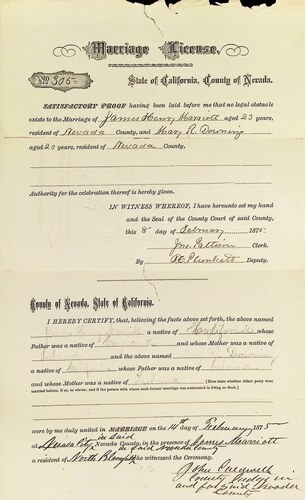 Marriage License,
No 306
State of California, County of Nevada.
SATISFACTORY PROOF having been laid before me that no legal obstacle
exists to the Marriage of James Henry Marriott aged 23 years,
resident of Nevada County, and Mary R. Downing
aged 20 years, resident of Nevada County.
Authority for the celebration thereof is hereby given.
IN WITNESS WHEREOF, I have hereunto set my hand
and the Seal of the County Court of said County,
this 8th day of February 1875
Jno. Pattison Clerk.
By Plunkett Deputy.
County of Nevada, State of California.
I HEREBY CERTIFY, that, believing the facts above set forth, the above named
a native of California whose
Father was a native of and whose Mother was a native of
and the above named Downing
a native of whose Father was a native of
and whose Mother was a native of [Here state whether either party was
married before; if so, to whom; and if the person with whom such former marriage was contracted is
were by me duly united in MARRIAGE on the 14th of February 1875
at City in said
County, in the presence of James Marriott
a resident of North Bloomfield in said Nevada County
who witnessed the Ceremony.
John
County Judge in
and for said Nevada
County